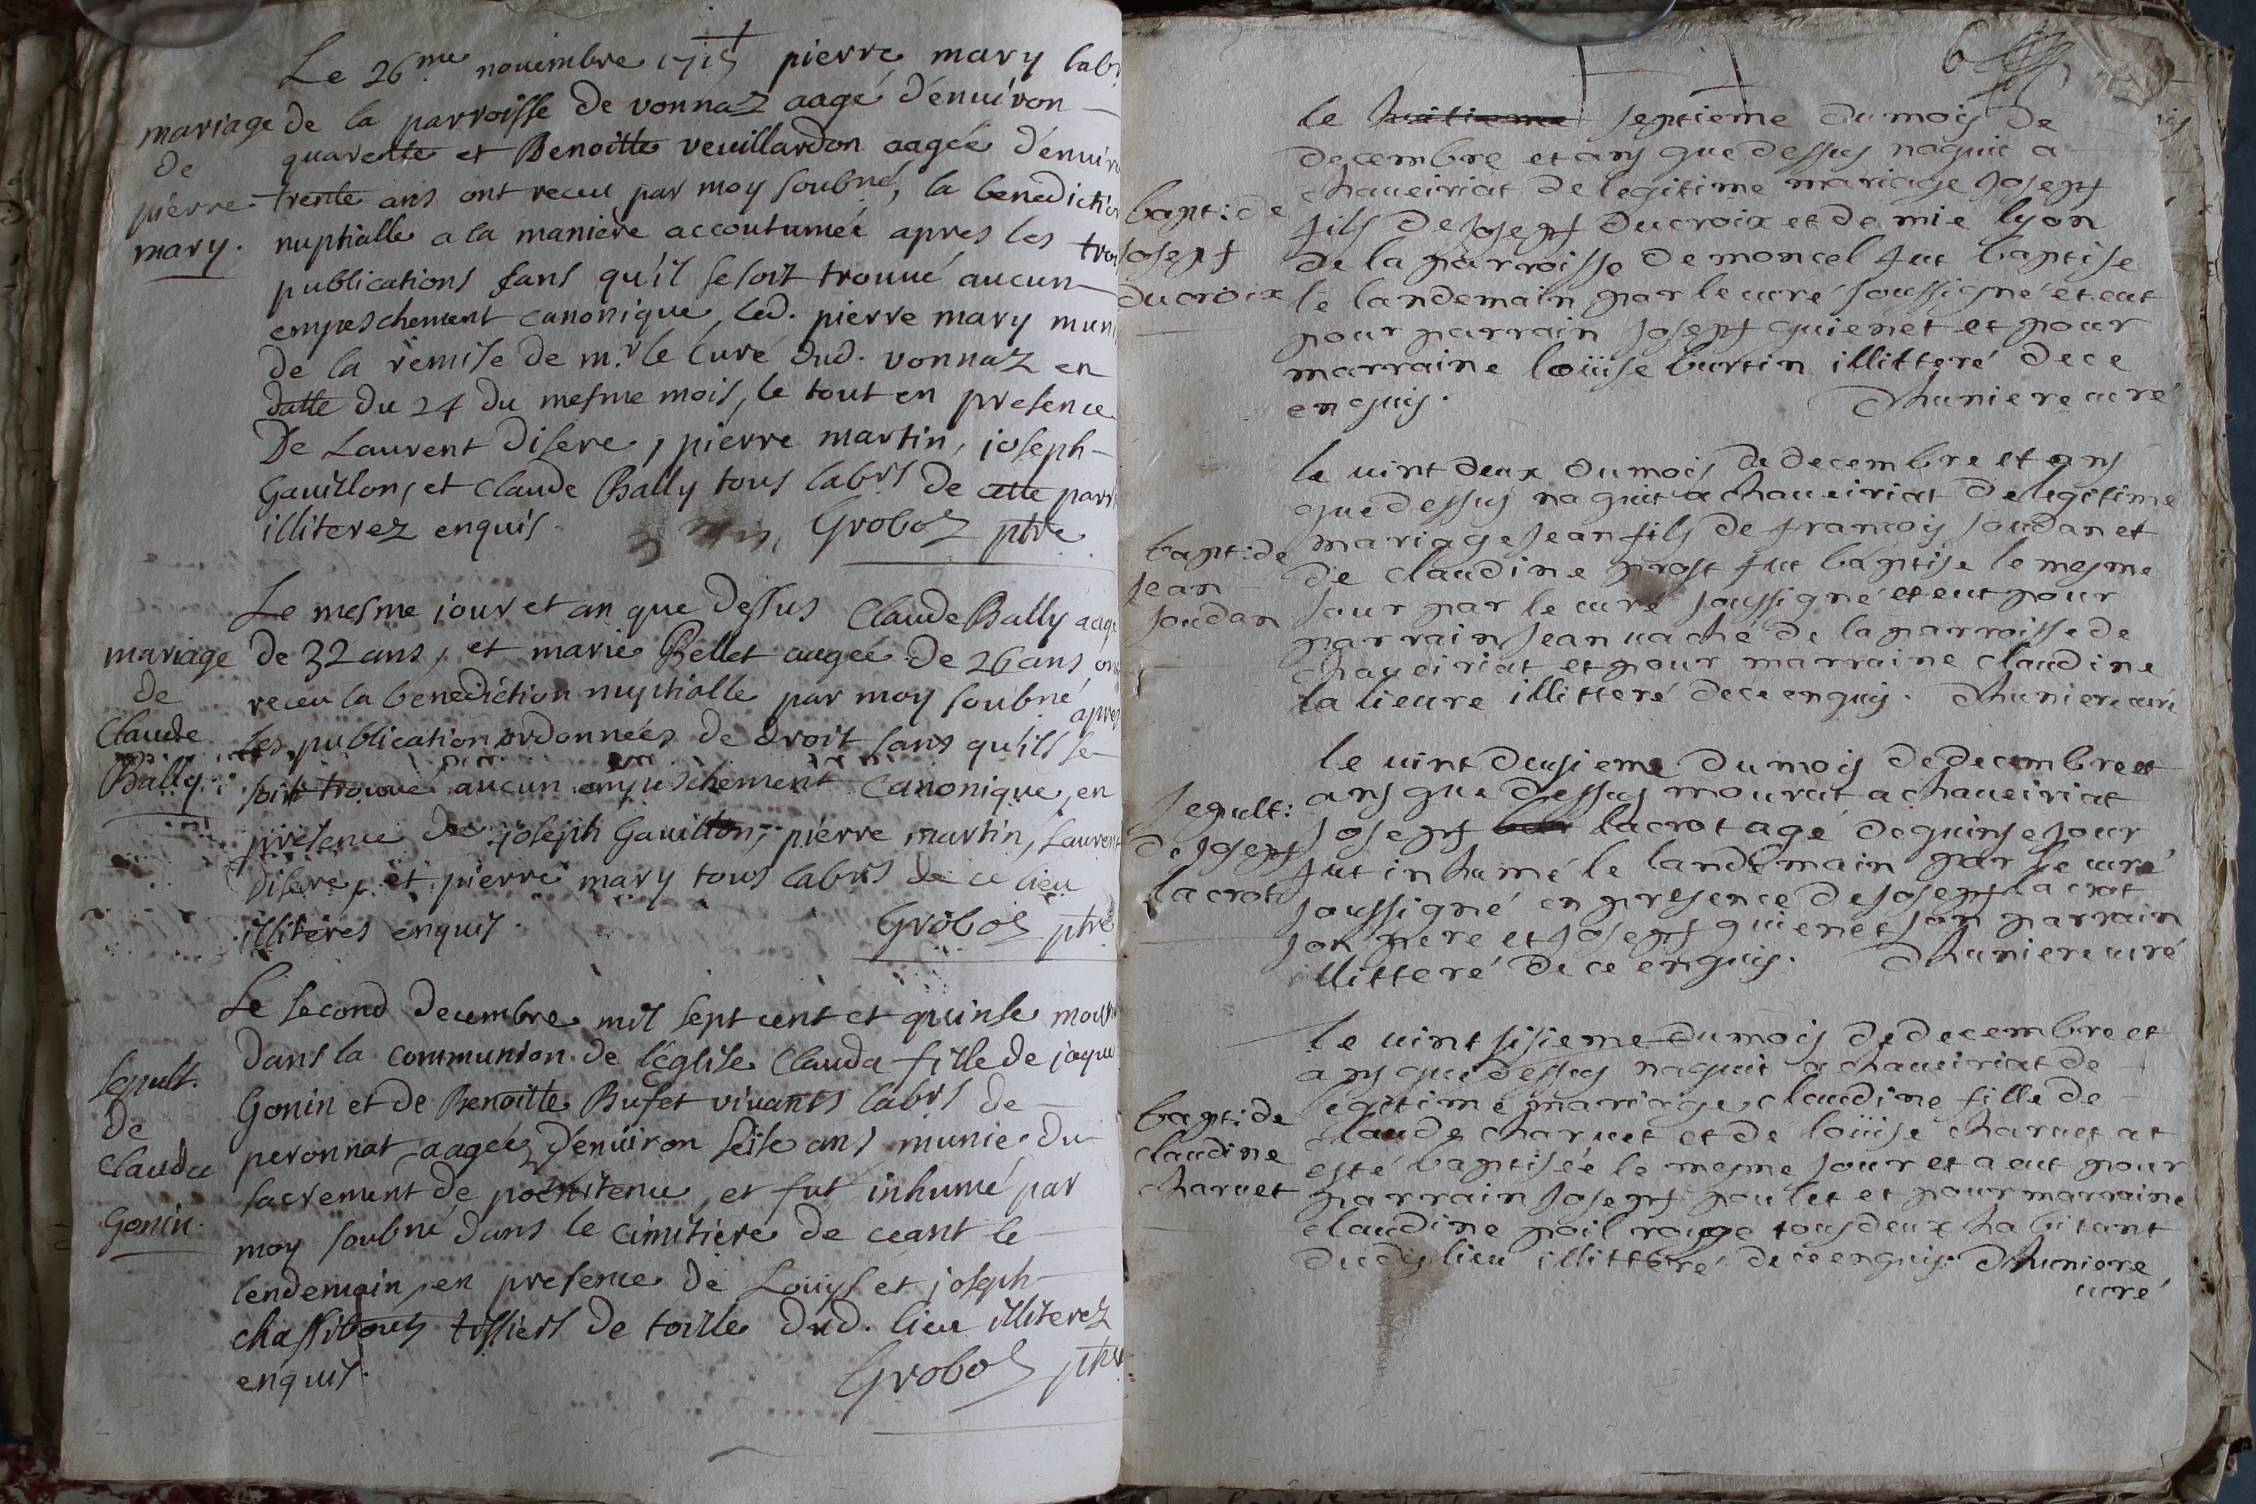 Le 26me nouembre 1715 pierre mary lab
mariage
de
pierre
mary.
de la parroisse de vonnaz aagé d'énuiron
quarente et Benoitte veuillardon aagée d'énuiro
trente ans ont receu par moy soubné, la benedictio
nuptialle a la manière accoutumée apres les troi
publications sans qu'il se soit trouué aucun
empeschement canonique, led. pierre mary muni
de la remise de mr. le Curé dud. vonnaz en
datte du 24 du mesme mois, le tout en presence
De Laurent disere, pierre martin, joseph
Gauillon, et claude Bally tous labrs de cette parr
illiterez enquis. Groboz ptre
mariage
de
Claude
Bally
Le mesme iour et an que dessus Claude Bally aagé
de 32 ans, et marie Bellet aagée de 26 ans on
receu la benediction nuptialle par moy soubné apres
les publication ordonnées de droit sans qu'ill se
soit trouué aucun empeschement canonique, en
presence de joseph Gauillon, pierre martin, Laurent
disere, et pierre mary tous labrs de ce lieu
illiteres enquis. Groboz ptre
sepult.
de
Clauda
Gonin.
Le second decembre mil sept cent et quinse mou
dans la communion de l'église Clauda fille de jaque
Gonin et de Benoitte Bufet viuants labrs de
peronnat aagée d'énuiron seise ans munie du
sacrement de poenitence, et fut inhumé par
moy soubné dans le cimitière de ceant le
lendemain, en presence de Loüys et joseph
chassibouz tissiers de toille dud. lieu illiterez
enquis. Groboz ptre
6
bapt: de
Josepf
ducroix
le huitieme septieme du mois de
decembre et ans que dessus naquit a
chaueiriat de legitime mariage Josepf
fils de Josepf ducroix et de mie lyon
de la parroisse de moncel fut baptise
le landemain par le curé soussigné et eut
pour parrain Josepf guienet et pour
marraine loüise burtin illitteré de ce
enquis. Dhuniere curé
bapt: de
Jean
Joudan
le vint deux du mois de decembre et ans
que dessus naquit a chaueiriat de legitime
mariage Jean fils de francois Joudan et
de claudine prost fut baptise le mesme
jour par le curé soussigné et eut pour
parrain Jean vaché de la parroisse de
chaueiriat et pour marraine claudine
la lieure illitteré de ce enquis. Dhuniere curé
sepult:
de Josepf
lacrot
le vint deusieme du mois de decembre et
ans que dessus mourut a chaueiriat
Josepf lacrot agé de quinse jour
fut inhumé le landemain par le curé
soussigné en presence de Josepf lacrot
son pere et Josepf guienet son parrain
illitteré de ce enquis. Dhuniere curé
bapt: de
claudine
charuet
le vint sisieme du mois de decembre et
ans que dessus naquit a chaueiriat de
legitime mariage claudine fille de
claude charuet et de loüise charuet at
esté baptisée le mesme jour et a eut pour
parrain Josepf poulet et pour marraine
claudine poil rouge tous deux habitant
dudis lieu illitteré de ce enquis. Dhuniere
curé